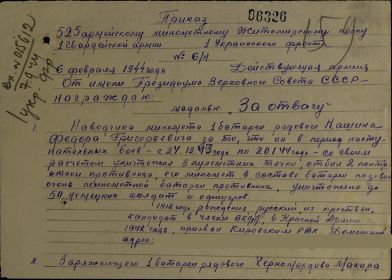 Приказ
06326
525 армейскому минометному Житомирскому полку
1 Гвардейской армии 1 Украинского фронта
№ 6/н
6 февраля 1944 года Действующая Армия
От имени Президиума Верховного Совета СССР
награждаю:
медалью „За отвагу"
1. Наводчика миномета 1 батареи рядового
Федора Григорьевича за то, что он в период насту-
пательных боев – с 24.12.43 года по 20.1.44 года – со своим
расчетом уничтожил 3 пулеметные точки, отбил 2 контр-
атаки противника, его миномет в составе батареи
огонь минометной батареи противника, уничтожено до
50 немецких солдат и офицеров.
1912 года рождения, русский, из крестьян,
кандидат в члены ВКП/б/, в Красной Армии с
призван Кировским РВК
адрес:
2. Заряжающего 1 батареи рядового Черномордова Макара